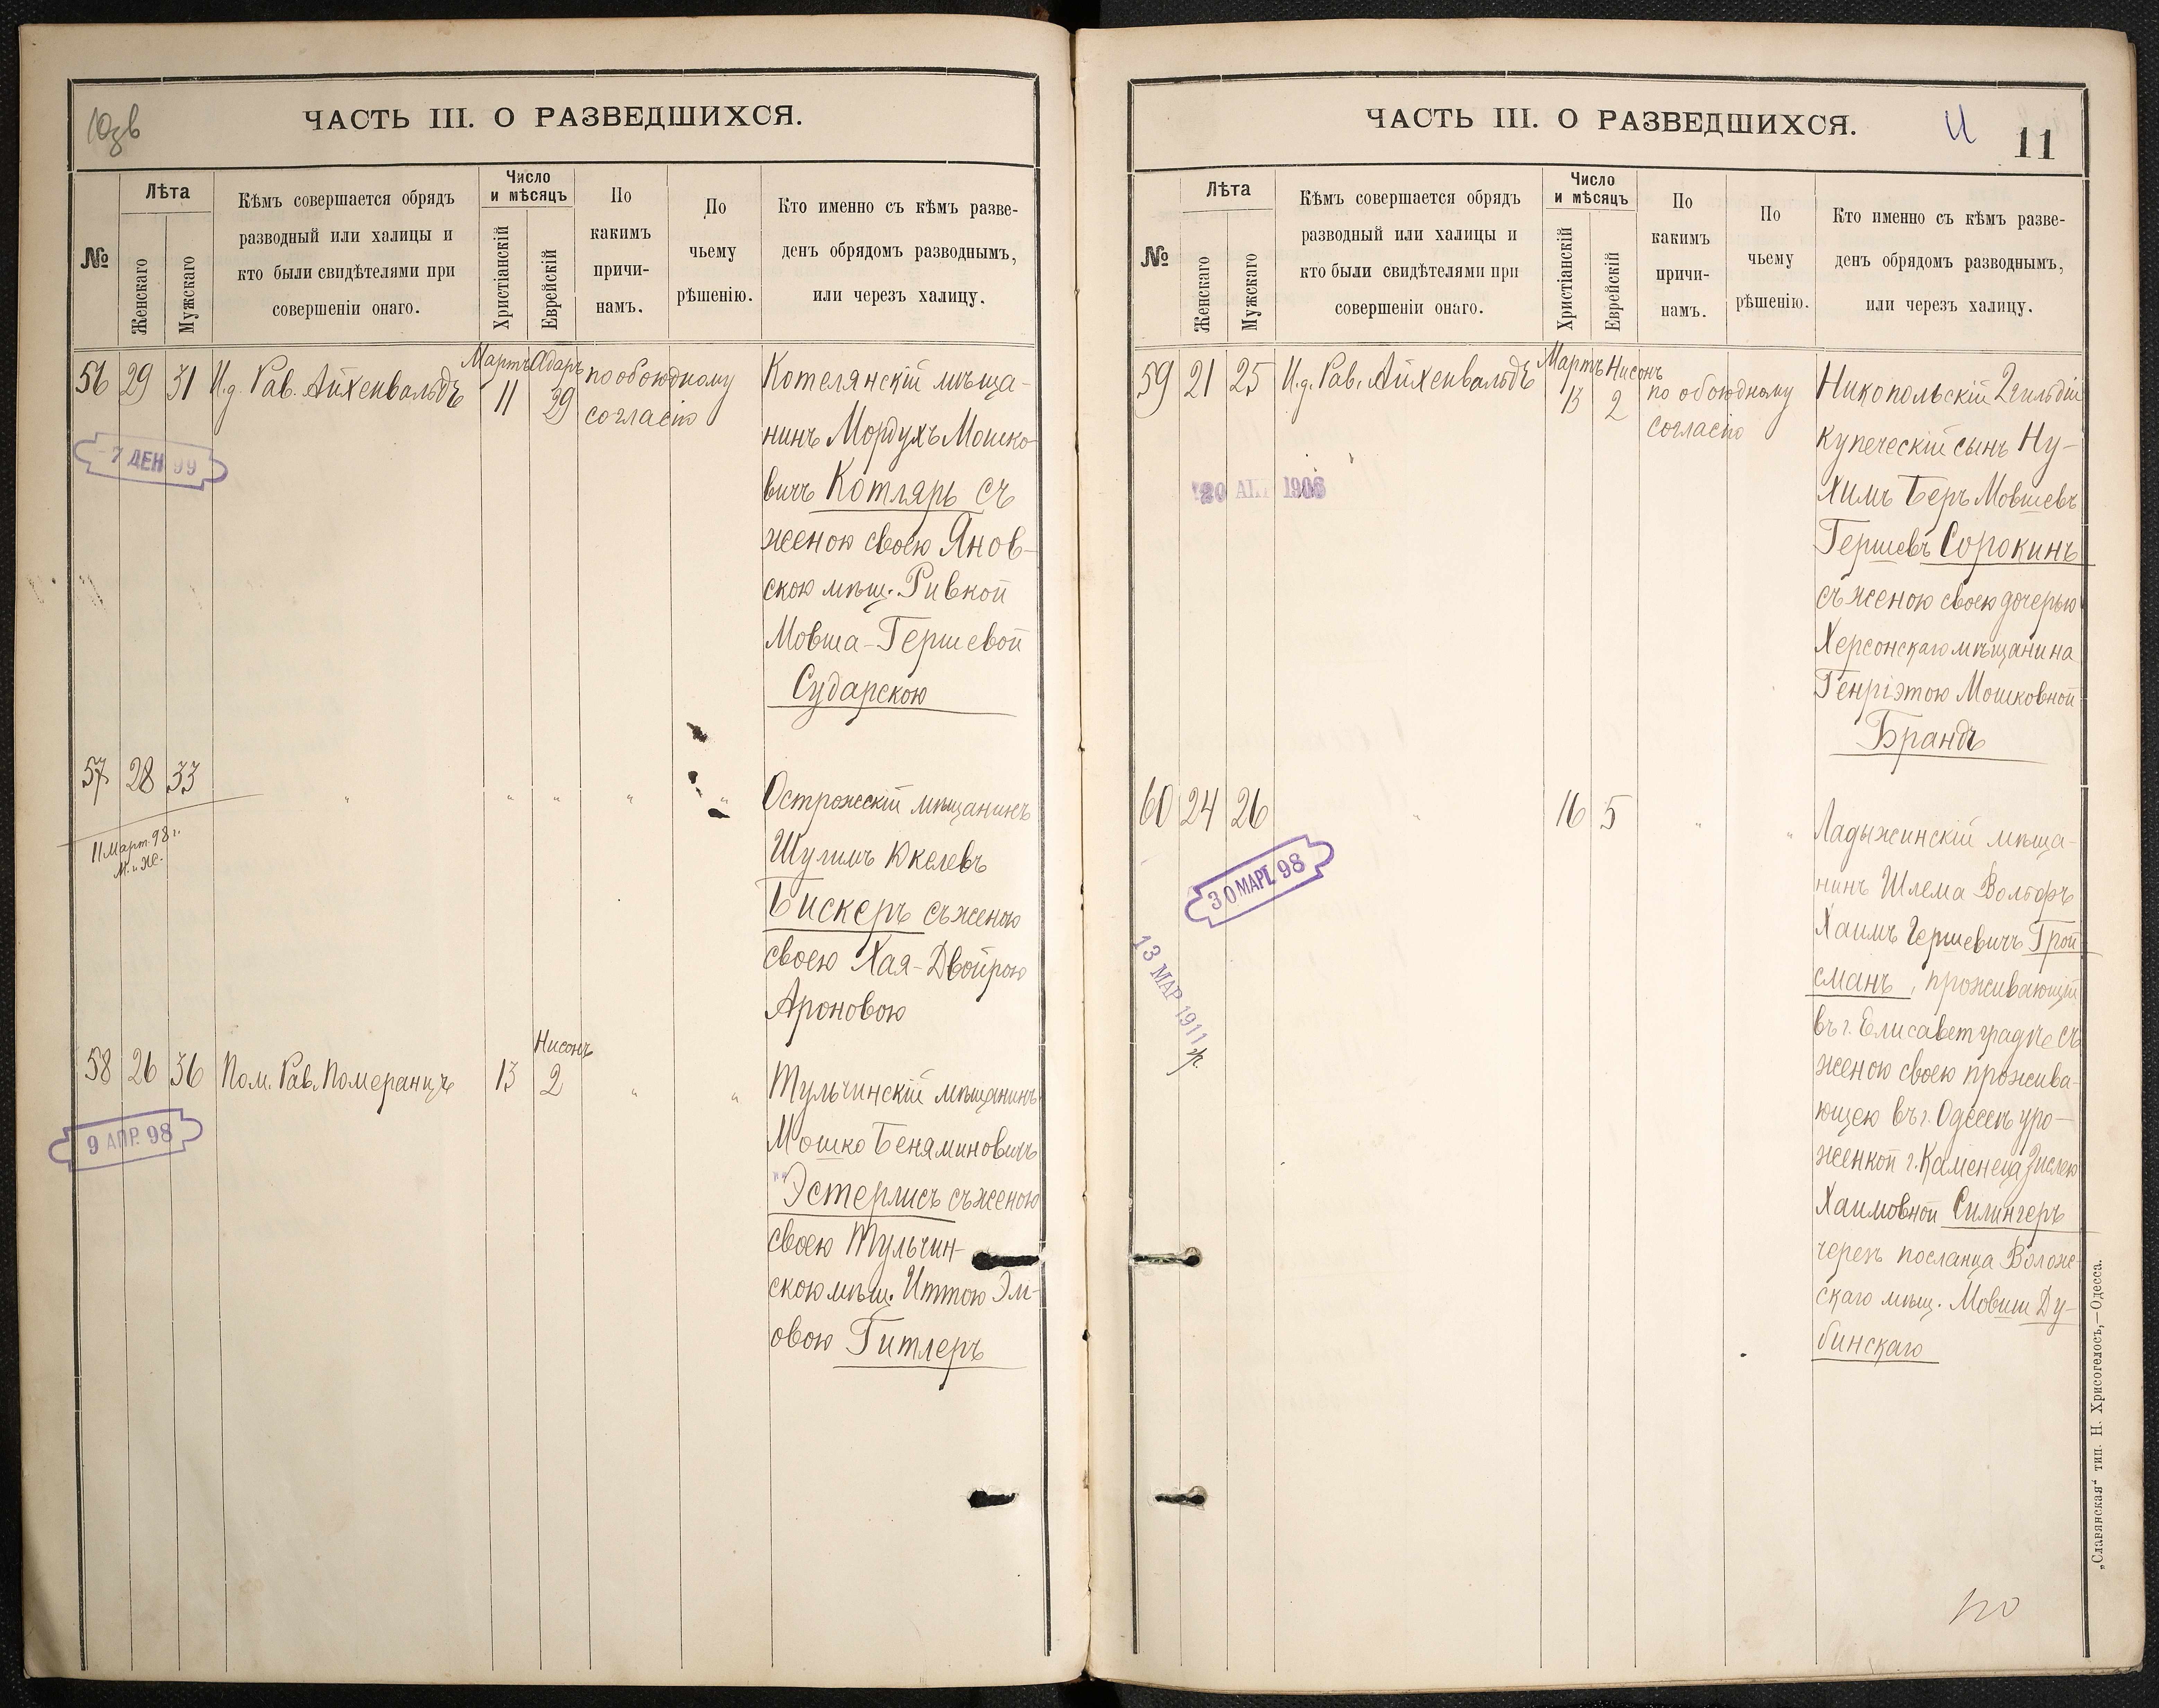 ЧАСТЬ III. О РАЗВЕДШИХСЯ.
№
Лѣта
Женскаго
Мужскаго
Кѣмъ совершается обрядъ
разводный или халицы и
кто были свидѣтелями при
совершеніи онаго.
Число
и мѣсяцъ
Христіанскій
Еврейскій
По
какимъ
причи-
намъ.
По
чьему
рѣшенію.
Кто именно съ кѣмъ разве-
денъ обрядомъ разводнымъ,
или черезъ халицу.
56 29 31 И.д. Рав. Айхенвальдъ
Мартъ Адаръ
11 29
по обоюдному
согласію
7 ДЕК 99
Котелянскій мѣща-
нинъ Мордухъ Мошко-
вичъ Котляръ съ
женою своею Янов-
скою мѣщ. Ривкой
Мовша-Гершевой
Сударскою
57 28 33 " " " " "
11 Март. 98 г.
М. и Ж.
Острожскій мѣщанинъ
Шулимъ Юкелевъ
Бискеръ съ женою
своею Хая-Двойрою
Ароновою
58 26 36 Пом. Рав. Померанцъ
Нисонъ
13 2 " "
9 АПР. 98
Тульчинскій мѣщанинъ
Мошко Беняминовичъ
Эстерлисъ съ женою
своею Тульчин-
скою мѣщ. Иттою Эл-
овою Гитлеръ
ЧАСТЬ III. О РАЗВЕДШИХСЯ.
11
№
Лѣта
Женскаго
Мужскаго
Кѣмъ совершается обрядъ
разводный или халицы и
кто были свидѣтелями при
совершеніи онаго.
Число
и мѣсяцъ
Христіанскій
Еврейскій
По
какимъ
причи-
намъ.
По
чьему
рѣшенію.
Кто именно съ кѣмъ разве-
денъ обрядомъ разводнымъ,
или черезъ халицу.
59 21 25 И.д. Рав. Айхенвальдъ
Мартъ Нисонъ
13 2
по обоюдному
согласію
Никопольскій 2 гильдіи
купеческій сынъ Ну-
химъ Беръ Мовшевъ
Гершевъ Сорокинъ
съ женою своею дочерью
Херсонскаго мѣщанина
Генріэтою Мошковной
Брандъ
60 24 26 " 16 5 " "
30 МАРТ. 98
13 МАР 1911
Ладыжинскій мѣща-
нинъ Шлема Волфъ
Хаимъ Гершевичъ Грой-
сманъ, проживающій
въ г. Елисаветградѣ съ
женою своею прожива-
ющею въ г. Одессѣ уро-
женкой г. Каменца
Хаимовной Силингеръ
черезъ посланца
скаго мѣщ. Мовши Ду-
бинскаго
„Славянская“ тип. Н. Хрисогелосъ,—Одесса.